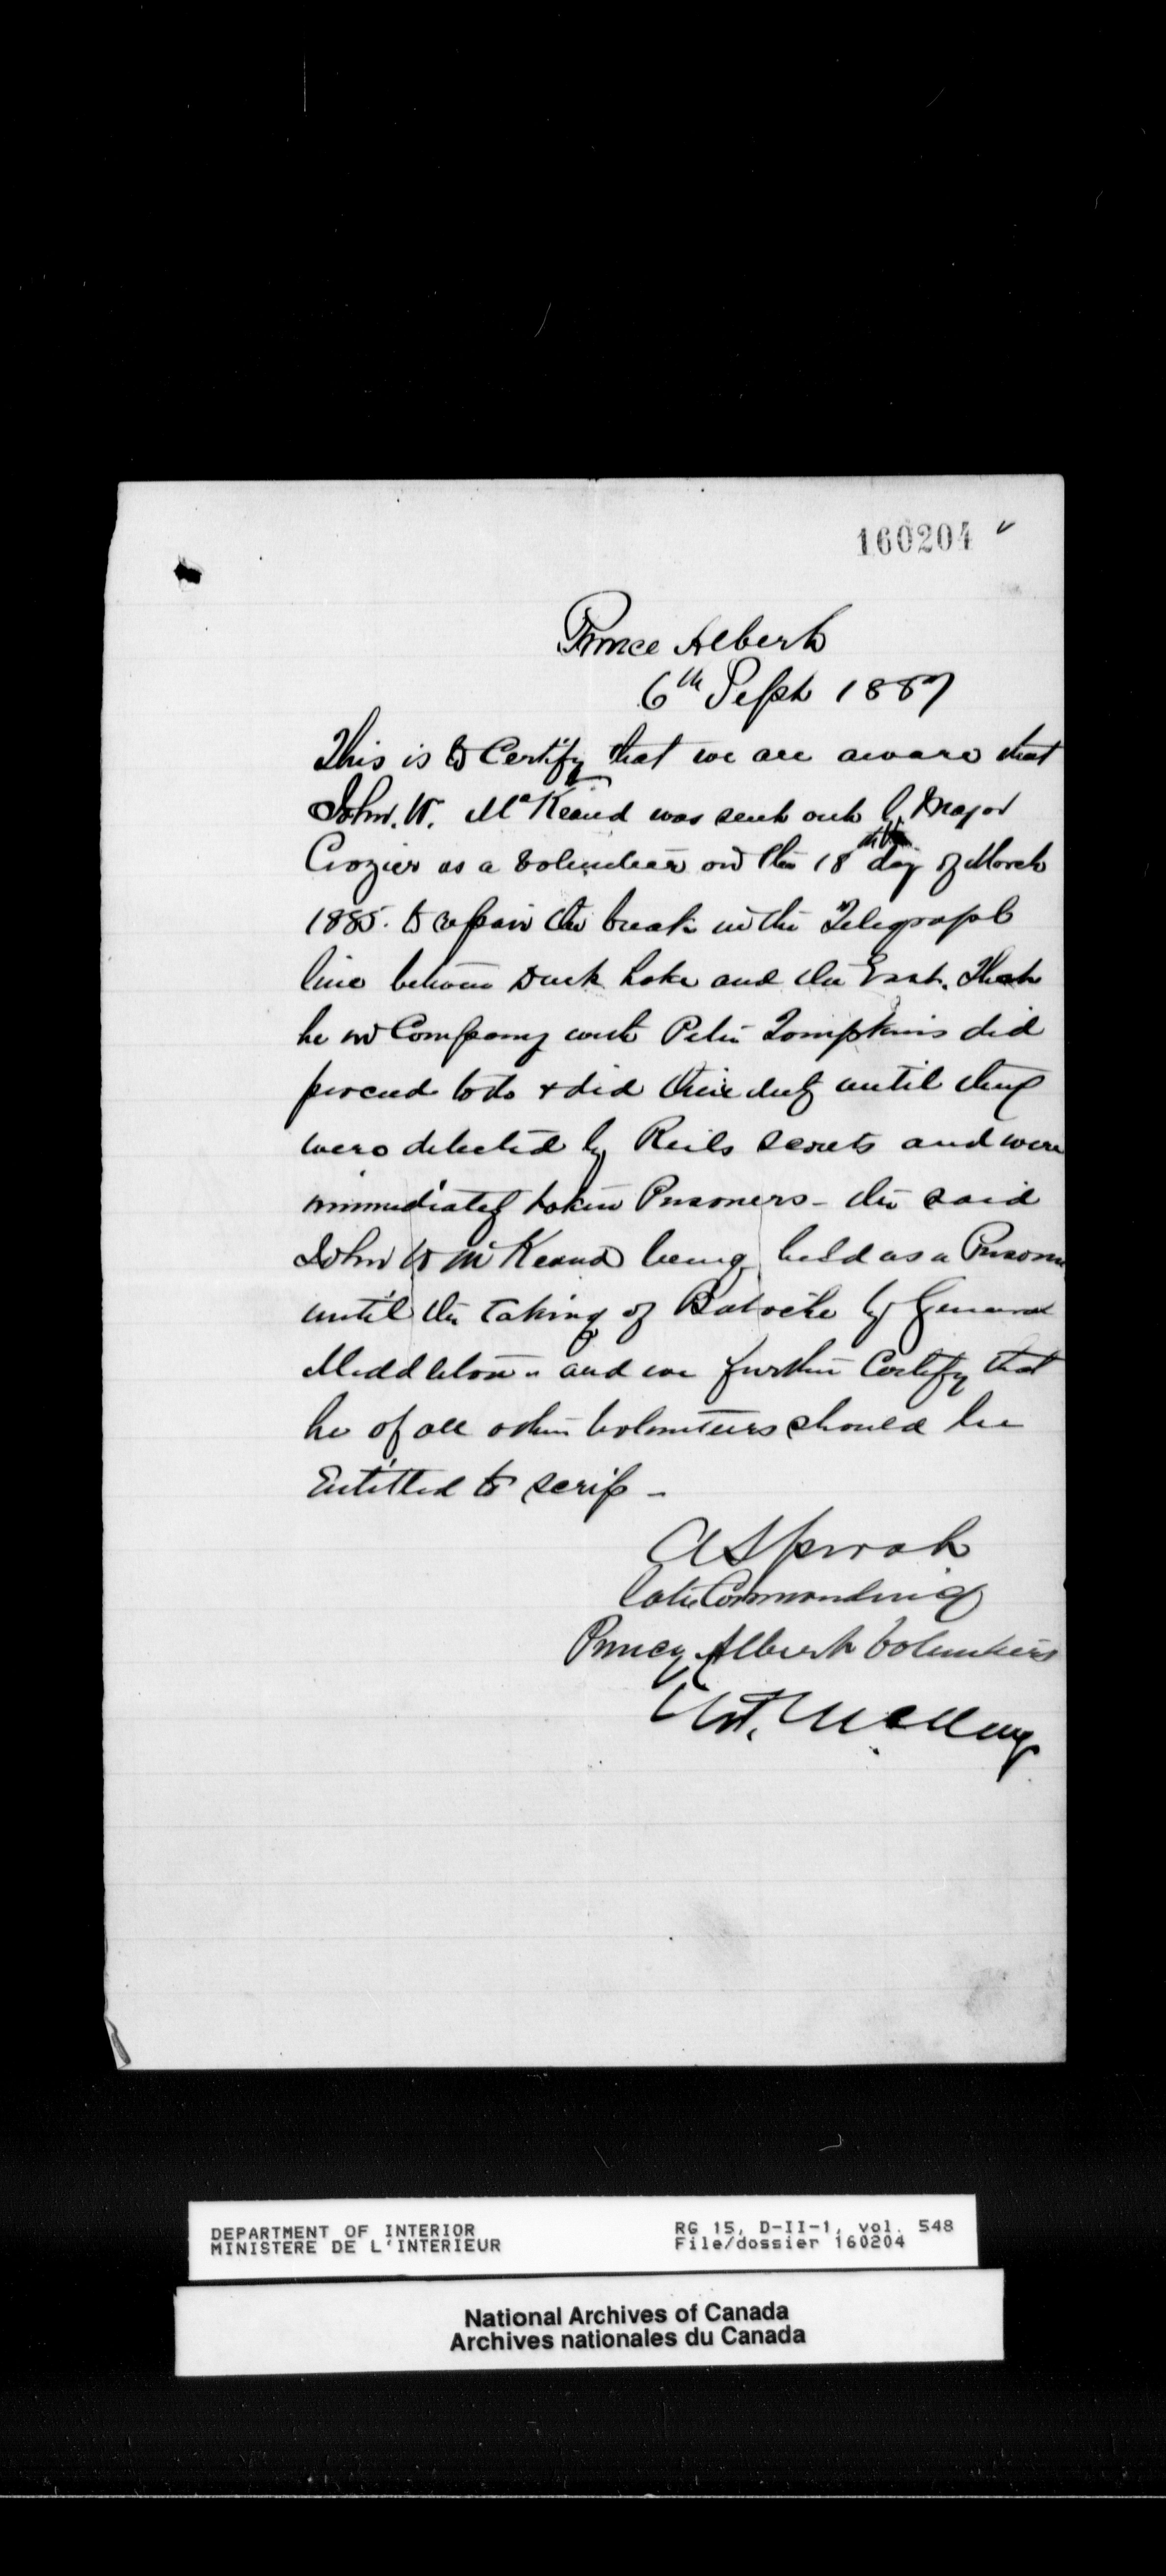 160204
Prince Albert
6th Sept 1887
This is to Certify that we are aware that
John. W. McKeand was sent out by Major
Crozier as a Volunteer on the 18 day of March
1885. to repair the break in the Telegraph
line between Duck Lake and the East. That
he in Company with Peter Tompkins did
proceed to do & did their duty until they
were detected by Reils scouts and were
immediately taken Prisoners - the said
John W McKeand being held as a Prisoner
until the taking of Batoche by General
Middleton - and we further Certify that
he of all other Volunteers should be
Entitled to scrip -
A Sproat
late Commanding
Prince Albert Volunteers
DEPARTMENT OF INTERIOR
MINISTERE DE L'INTERIEUR
RG 15, D-II-1, vol. 548
File/dossier 160204
National Archives of Canada
Archives nationales du Canada